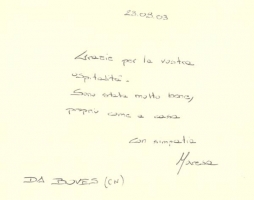 25.04.03
Grazie per la vostra
ospitalità.
Sono state molto buone,
proprio come a casa
Con simpatia
DA BOVES (CN)